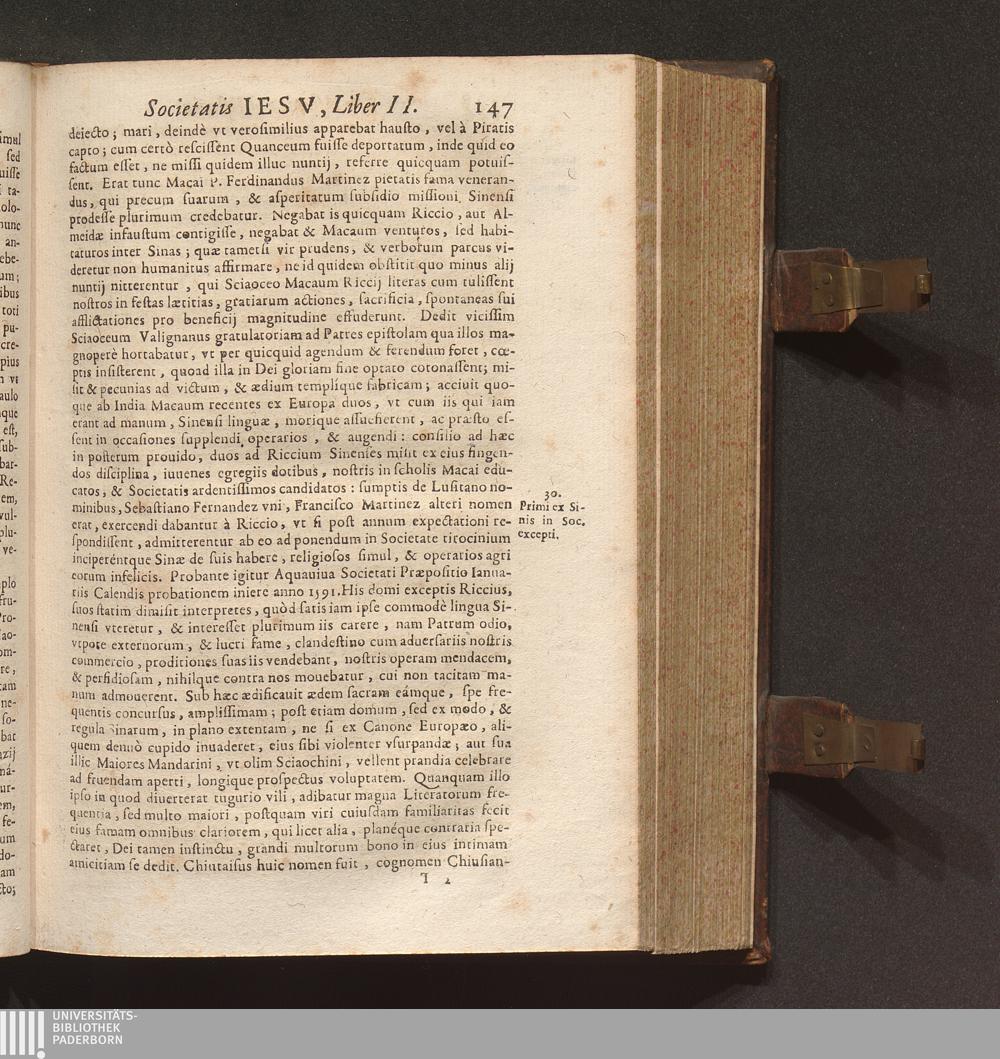 Societatis IESV, Liber II. 147
deiecto; mari, deindè vt verosimilius apparebat hausto, vel à Piratis
capto; cum certò rescissent Quanceum fuisse deportatum, inde quid eo
factum esset, ne missi quidem illuc nuntij, referre quicquam potuis-
sent. Erat tunc Macai P. Ferdinandus Martinez pietatis fama veneran-
dus, qui precum suarum, & asperitatum subsidio missioni Sinensi
prodesse plurimum credebatur. Negabat is quicquam Riccio, aut Al-
meidæ infaustum contigisse, negabat & Macaum venturos, sed habi-
taturos inter Sinas; quæ tametsi vir prudens, & verborum parcus vi-
deretur non humanitus affirmare, ne id quidem obstitit quo minus alij
nuntij nitterentur, qui Sciaoceo Macaum Riccij literas cum tulissent
nostros in festas lætitias, gratiarum actiones, sacrificia, spontaneas sui
afflictationes pro beneficij magnitudine effuderunt. Dedit vicissim
Sciaoceum Valignanus gratulatoriam ad Patres epistolam qua illos ma-
gnoperè hortabatur, vt per quicquid agendum & ferendum foret, cœ-
ptis insisterent, quoad illa in Dei gloriam fine optato coronassent; mi-
sit & pecunias ad victum, & ædium templique fabricam; acciuit quo-
que ab India Macaum recentes ex Europa duos, vt cum iis qui iam
erant ad manum, Sinensi linguæ, morique assuefierent, ac præsto es-
sent in occasiones supplendi operarios, & augendi: consilio ad hæc
in posterum prouido, duos ad Riccium Sinenses misit ex eius fingen-
dos disciplina, iuuenes egregiis dotibus, nostris in scholis Macai edu-
catos, & Societatis ardentissimos candidatos: sumptis de Lusitano no-
minibus, Sebastiano Fernandez vni, Francisco Martinez alteri nomen
erat, exercendi dabantur à Riccio, vt si post annum expectationi re-
spondissent, admitterentur ab eo ad ponendum in Societate tirocinium
inciperéntque Sinæ de suis habere, religiosos simul, & operarios agri
eorum infelicis. Probante igitur Aquauiua Societati Præposito Ianua-
riis Calendis probationem iniere anno 1591. His domi exceptis Riccius,
suos statim dimisit interpretes, quòd satis iam ipse commodè lingua Si-
nensi vteretur, & interesset plurimum iis carere, nam Patrum odio,
vtpote externorum, & lucri fame, clandestino cum aduersariis nostris
commercio, proditiones suas iis vendebant, nostris operam mendacem,
& perfidiosam, nihilque contra nos mouebatur, cui non tacitam ma-
num admouerent. Sub hæc ædificauit ædem sacram eámque, spe fre-
quentis concursus, amplissimam; post etiam domum, sed ex modo, &
regula Sinarum, in plano extentam, ne si ex Canone Europæo, ali-
quem denuò cupido inuaderet, eius sibi violenter vsurpandæ; aut sua
illic Maiores Mandarini, vt olim Sciaochini, vellent prandia celebrare
ad fruendam aperti, longique prospectus voluptatem. Quanquam illo
ipso in quod diuerterat tugurio vili, adibatur magna Literatorum fre-
quentia, sed multo maiori, postquam viri cuiusdam familiaritas fecit
eius famam omnibus clariorem, qui licet alia, planéque contraria spe-
ctaret, Dei tamen instinctu, grandi multorum bono in eius intimam
amicitiam se dedit. Chiutaisus huic nomen fuit, cognomen Chiusian-
T 2
30.
Primi ex Si-
nis in Soc.
excepti.
UNIVERSITÄTS-
BIBLIOTHEK
PADERBORN